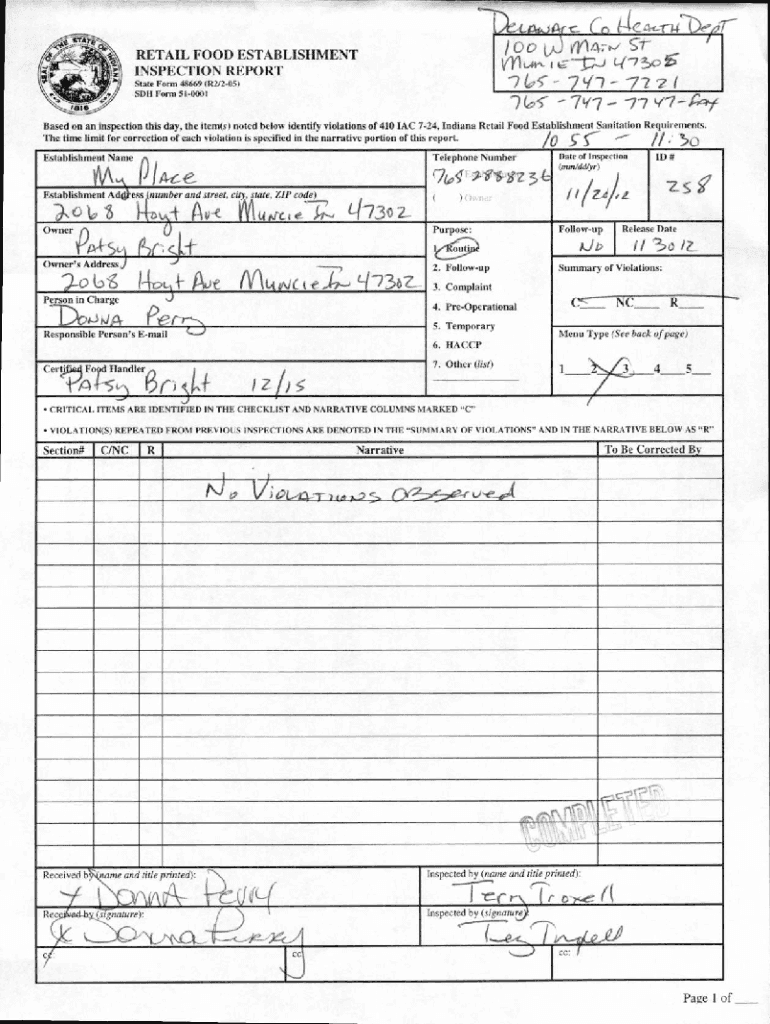 DELAWARE Co HEALTH DepT
100 W MAIN ST
MUNCIE IN 47305
765-747-7721
765-747-7747-fax
RETAIL FOOD ESTABLISHMENT
INSPECTION REPORT
State Form 48669 (R2/2-05)
SDH Form 51-0001
Based on an inspection this day, the item(s) noted below identify violations of 410 IAC 7-24, Indiana Retail Food Establishment Sanitation Requirements.
The time limit for correction of each violation is specified in the narrative portion of this report.
10 55 - 11:30
Establishment Name
My PLACE
Telephone Number
765 2888236
( ) Owner
Date of Inspection
(mm/dd/yr)
ID #
258
Establishment Address (number and street, city, state, ZIP code)
2068 Hoyt Ave Muncie In 47302
Owner
PATSY Bright
Purpose:
1. Routine
2. Follow-up
3. Complaint
4. Pre-Operational
5. Temporary
6. HACCP
7. Other (list)
Follow-up
No
Release Date
11 30 12
Owner's Address
2068 Hoyt Ave Muncie In 47302
Summary of Violations:
C NC R
Person in Charge
DONNA Perry
Responsible Person's E-mail
Menu Type (See back of page)
1 2 3 4 5
Certified Food Handler
PATSY Bright 12/15
• CRITICAL ITEMS ARE IDENTIFIED IN THE CHECKLIST AND NARRATIVE COLUMNS MARKED "C"
• VIOLATION(S) REPEATED FROM PREVIOUS INSPECTIONS ARE DENOTED IN THE "SUMMARY OF VIOLATIONS" AND IN THE NARRATIVE BELOW AS "R"
Section# C/NC R Narrative To Be Corrected By
No VIOLATIONS OBServed
COMPLETED
Received by (name and title printed):
X DONNA Perry
Inspected by (name and title printed):
Terry Troxell
Received by (signature):
X Donna Perry
Inspected by (signature):
Terry Troxell
cc: cc: cc:
Page 1 of